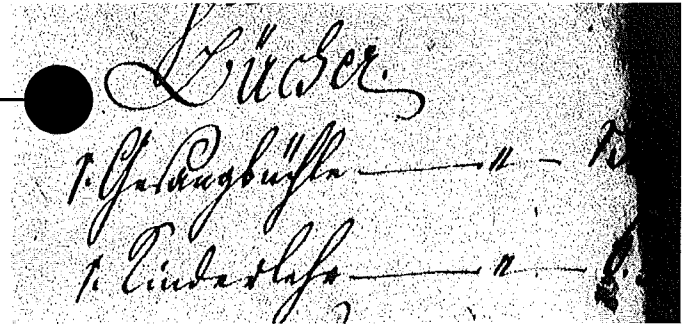 Bücher.
1. Gesangbüchle — " —
1. Kinderlehr — " —